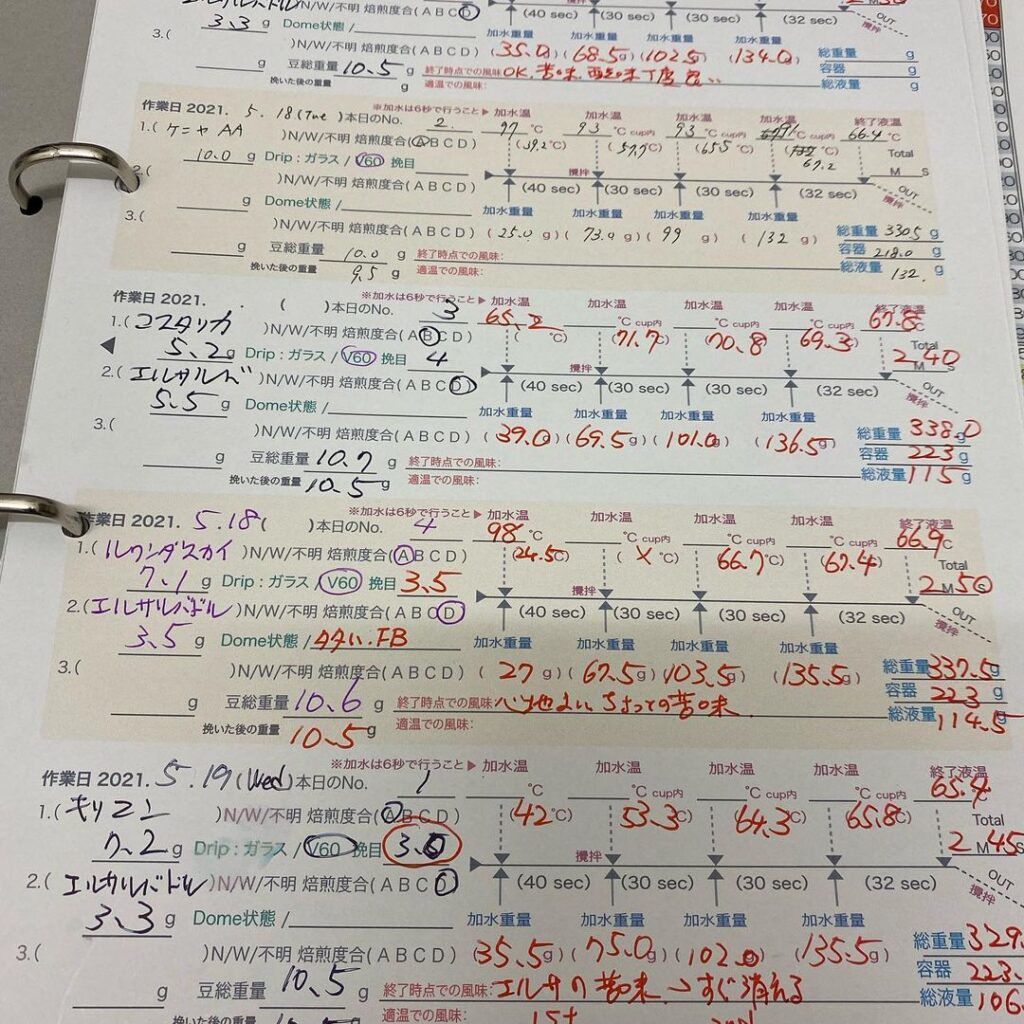 (40 sec) (30 sec) (30 sec) (32 sec) OUT
3.3 g Dome状態 / 加水重量 加水重量 加水重量 加水重量 攪拌
3.( )N/W/不明 焙煎度合(ABCD) (35.0g)(68.5g)(102.5g)(134.0g) 総重量 g
g 豆総重量 10.5 g 終了時点での風味: OK. 苦味. 容器 g
適温での風味: 総液量 g
作業日 2021. 5. 18 (Tue) 本日のNo. 2 ※加水は6秒で行うこと▶ 加水温 加水温 加水温 加水温 終了液温
1.(ケニヤ AA )N/W/不明 焙煎度合(ABCD) 97 ℃ 93 ℃ cup内 93 ℃ cup内 ℃ cup内 66.4 ℃
10.0 g Drip : ガラス / V60 挽目 (39.2℃) (57.7℃) (65.5℃) 67.2 Total
2.( )N/W/不明 焙煎度合(ABCD) 攪拌 M S
(40 sec) (30 sec) (30 sec) (32 sec) OUT
g Dome状態 / 加水重量 加水重量 加水重量 加水重量 攪拌
3.( )N/W/不明 焙煎度合(ABCD) (25.0g)(73.0g)(99 g)(132 g) 総重量 330.5 g
g 豆総重量 10.0 g 終了時点での風味: 容器 218.0 g
挽いた後の重量 9.5 g 適温での風味: 総液量 132. g
作業日 2021. ( ) 本日のNo. 3 ※加水は6秒で行うこと▶ 加水温 加水温 加水温 加水温 終了液温
1.(コスタリカ )N/W/不明 焙煎度合(ABCD) 65.2 ℃ cup内 ℃ cup内 ℃ cup内 67.8℃
5.2 g Drip : ガラス / V60 挽目 4 ( ℃) (71.7℃) (70.8℃) (69.3℃) Total
2.(エルサルバド )N/W/不明 焙煎度合(ABCD) 攪拌 2 M 40 S
(40 sec) (30 sec) (30 sec) (32 sec) OUT
5.5 g Dome状態 / 加水重量 加水重量 加水重量 加水重量 攪拌
3.( )N/W/不明 焙煎度合(ABCD) (39.0g)(69.5g)(101.0g)(136.5g) 総重量 338.0 g
g 豆総重量 10.7 g 終了時点での風味: 容器 223 g
挽いた後の重量 10.5 g 適温での風味: 総液量 115 g
作業日 2021. 5.18 ( ) 本日のNo. 4 ※加水は6秒で行うこと▶ 加水温 加水温 加水温 加水温 終了液温
1.(ルワンダスカイ )N/W/不明 焙煎度合(ABCD) 98 ℃ ℃ cup内 ℃ cup内 ℃ cup内 66.9℃
7.1 g Drip : ガラス / V60 挽目 3.5 (24.5℃) (X ℃) (66.7℃) (67.4℃) Total
2.(エルサルバドル )N/W/不明 焙煎度合(ABCD) 攪拌 2 M 50 S
(40 sec) (30 sec) (30 sec) (32 sec) OUT
3.5 g Dome状態 / FB 加水重量 加水重量 加水重量 加水重量 攪拌
3.( )N/W/不明 焙煎度合(ABCD) (27 g)(67.5g)(103.5g)(135.5g) 総重量 337.5g
g 豆総重量 10.6 g 終了時点での風味: 心地よい ちょっとの苦味 容器 223 g
挽いた後の重量 10.5 g 適温での風味: 総液量 114.5 g
作業日 2021. 5.19 (Wed) 本日のNo. 1 ※加水は6秒で行うこと▶ 加水温 加水温 加水温 加水温 終了液温
1.(キリマン )N/W/不明 焙煎度合(ABCD) ℃ ℃ cup内 ℃ cup内 ℃ cup内 65.4℃
7.2 g Drip : ガラス / V60 挽目 3.0 (42℃) (53.3℃) (64.3℃) (65.8℃) Total
2.(エルサルバドル )N/W/不明 焙煎度合(ABCD) 攪拌 2 M 45 S
(40 sec) (30 sec) (30 sec) (32 sec) OUT
3.3 g Dome状態 / 加水重量 加水重量 加水重量 加水重量 攪拌
3.( )N/W/不明 焙煎度合(ABCD) (35.5g)(75.0g)(102.0g)(135.5g) 総重量 329.
g 豆総重量 10.5 g 終了時点での風味: エルサの苦味→すぐ消える 容器 223.
挽いた後の重量 g 適温での風味: 1st 総液量 106.